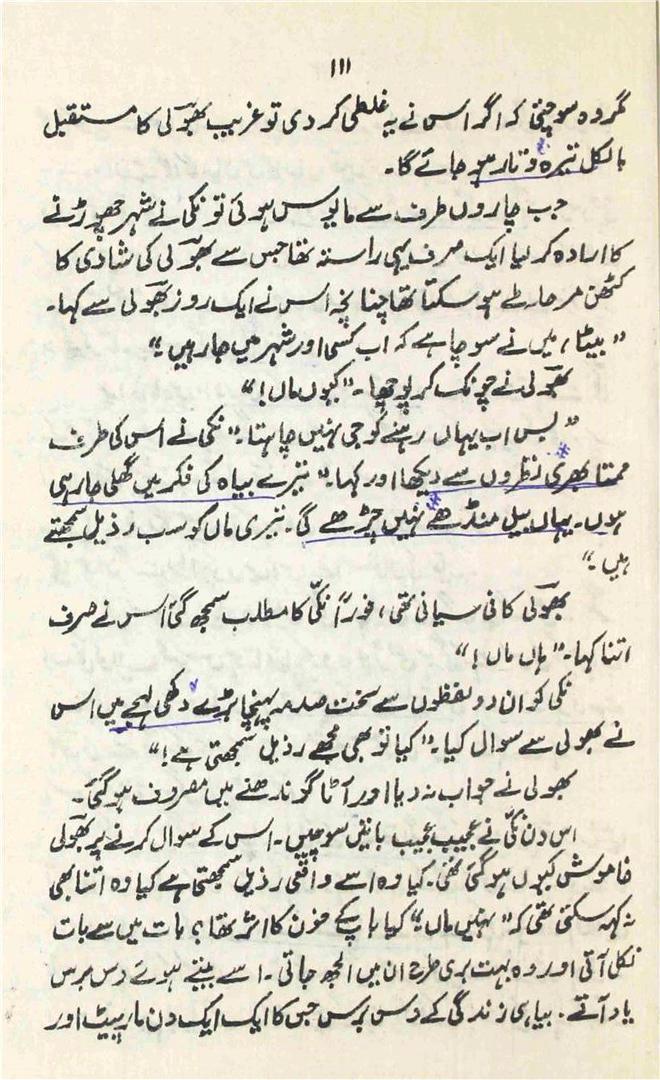 ۱۱۱
مگر وہ سوچتی کہ اگر اس نے یہ غلطی کر دی تو غریب بھوَلی کا مستقبل
بالکل تیرہ و تار ہو جائے گا۔
جب چاروں طرف سے مایوس ہوئی تو نکی نے شہر چھوڑنے
کا ارادہ کر لیا ایک صرف یہی راستہ تھا جس سے بھوَلی کی شادی کا
کٹھن مرحلہ طے ہو سکتا تھا چنانچہ اس نے ایک روز بھوَلی سے کہا۔
”بیٹا، میں نے سوچا ہے کہ اب کسی اور شہر میں جا رہیں“
بھوَلی نے چونک کر پوچھا۔ ”کیوں ماں!“
”بس اب یہاں رہنے کو جی نہیں چاہتا۔“ نکی نے اس کی طرف
ممتا بھری نظروں سے دیکھا اور کہا۔ ”تیرے بیاہ کی فکر میں گھلی جا رہی
ہوں۔ یہاں بیل منڈھے نہیں چڑھے گی۔ تیری ماں کو سب رذیل سمجھتے
ہیں۔“
بھوَلی کافی سیانی تھی، فوراً نکّی کا مطلب سمجھ گئی اس نے صرف
اتنا کہا۔ ”ہاں ماں!“
نکی کو ان دو لفظوں سے سخت صدمہ پہنچا بڑے دکھی لہجے میں اس
نے بھولی سے سوال کیا۔ ”کیا تو بھی مجھے رذیل سمجھتی ہے!“
بھولی نے جواب نہ دیا اور آٹا گوندھنے میں مصروف ہو گئی۔
اس دن نکّی نے عجیب عجیب باتیں سوچیں۔ اس کے سوال کرنے پر بھوَلی
خاموش کیوں ہو گئی تھی۔ کیا وہ اسے واقعی رذیل سمجھتی ہے کیا وہ اتنا بھی
نہ کہہ سکتی تھی کہ ”نہیں ماں“ کیا باپ کے خون کا اثر تھا؟ بات میں سے بات
نکل آتی اور وہ بہت بری طرح ان میں الجھ جاتی۔ اسے بیتے ہوئے دس برس
یاد آتے۔ بیاہی زندگی کے دس برس جس کا ایک ایک دن مار پیٹ اور